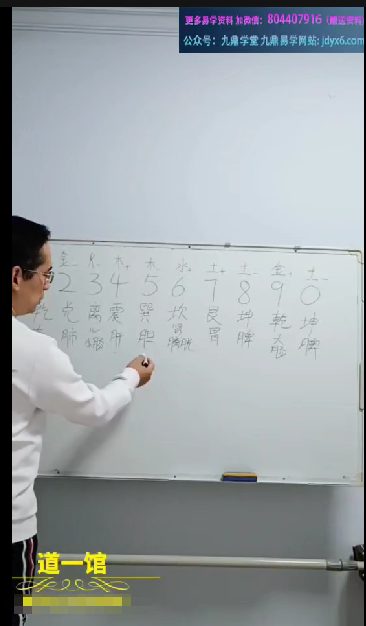 更多易学资料 加微信：804407916（赠送资料
公众号：九鼎学堂 九鼎易学网站: jdyx6.com
金- 火- 木+ 木- 水+ 土+ 土- 金+ 土-
2 3 4 5 6 7 8 9 0
乾 兑 离 震 巽 坎 艮 坤 乾 坤
肺 心小肠 肝 胆 肾膀胱 胃 脾 大肠 脾
道一馆